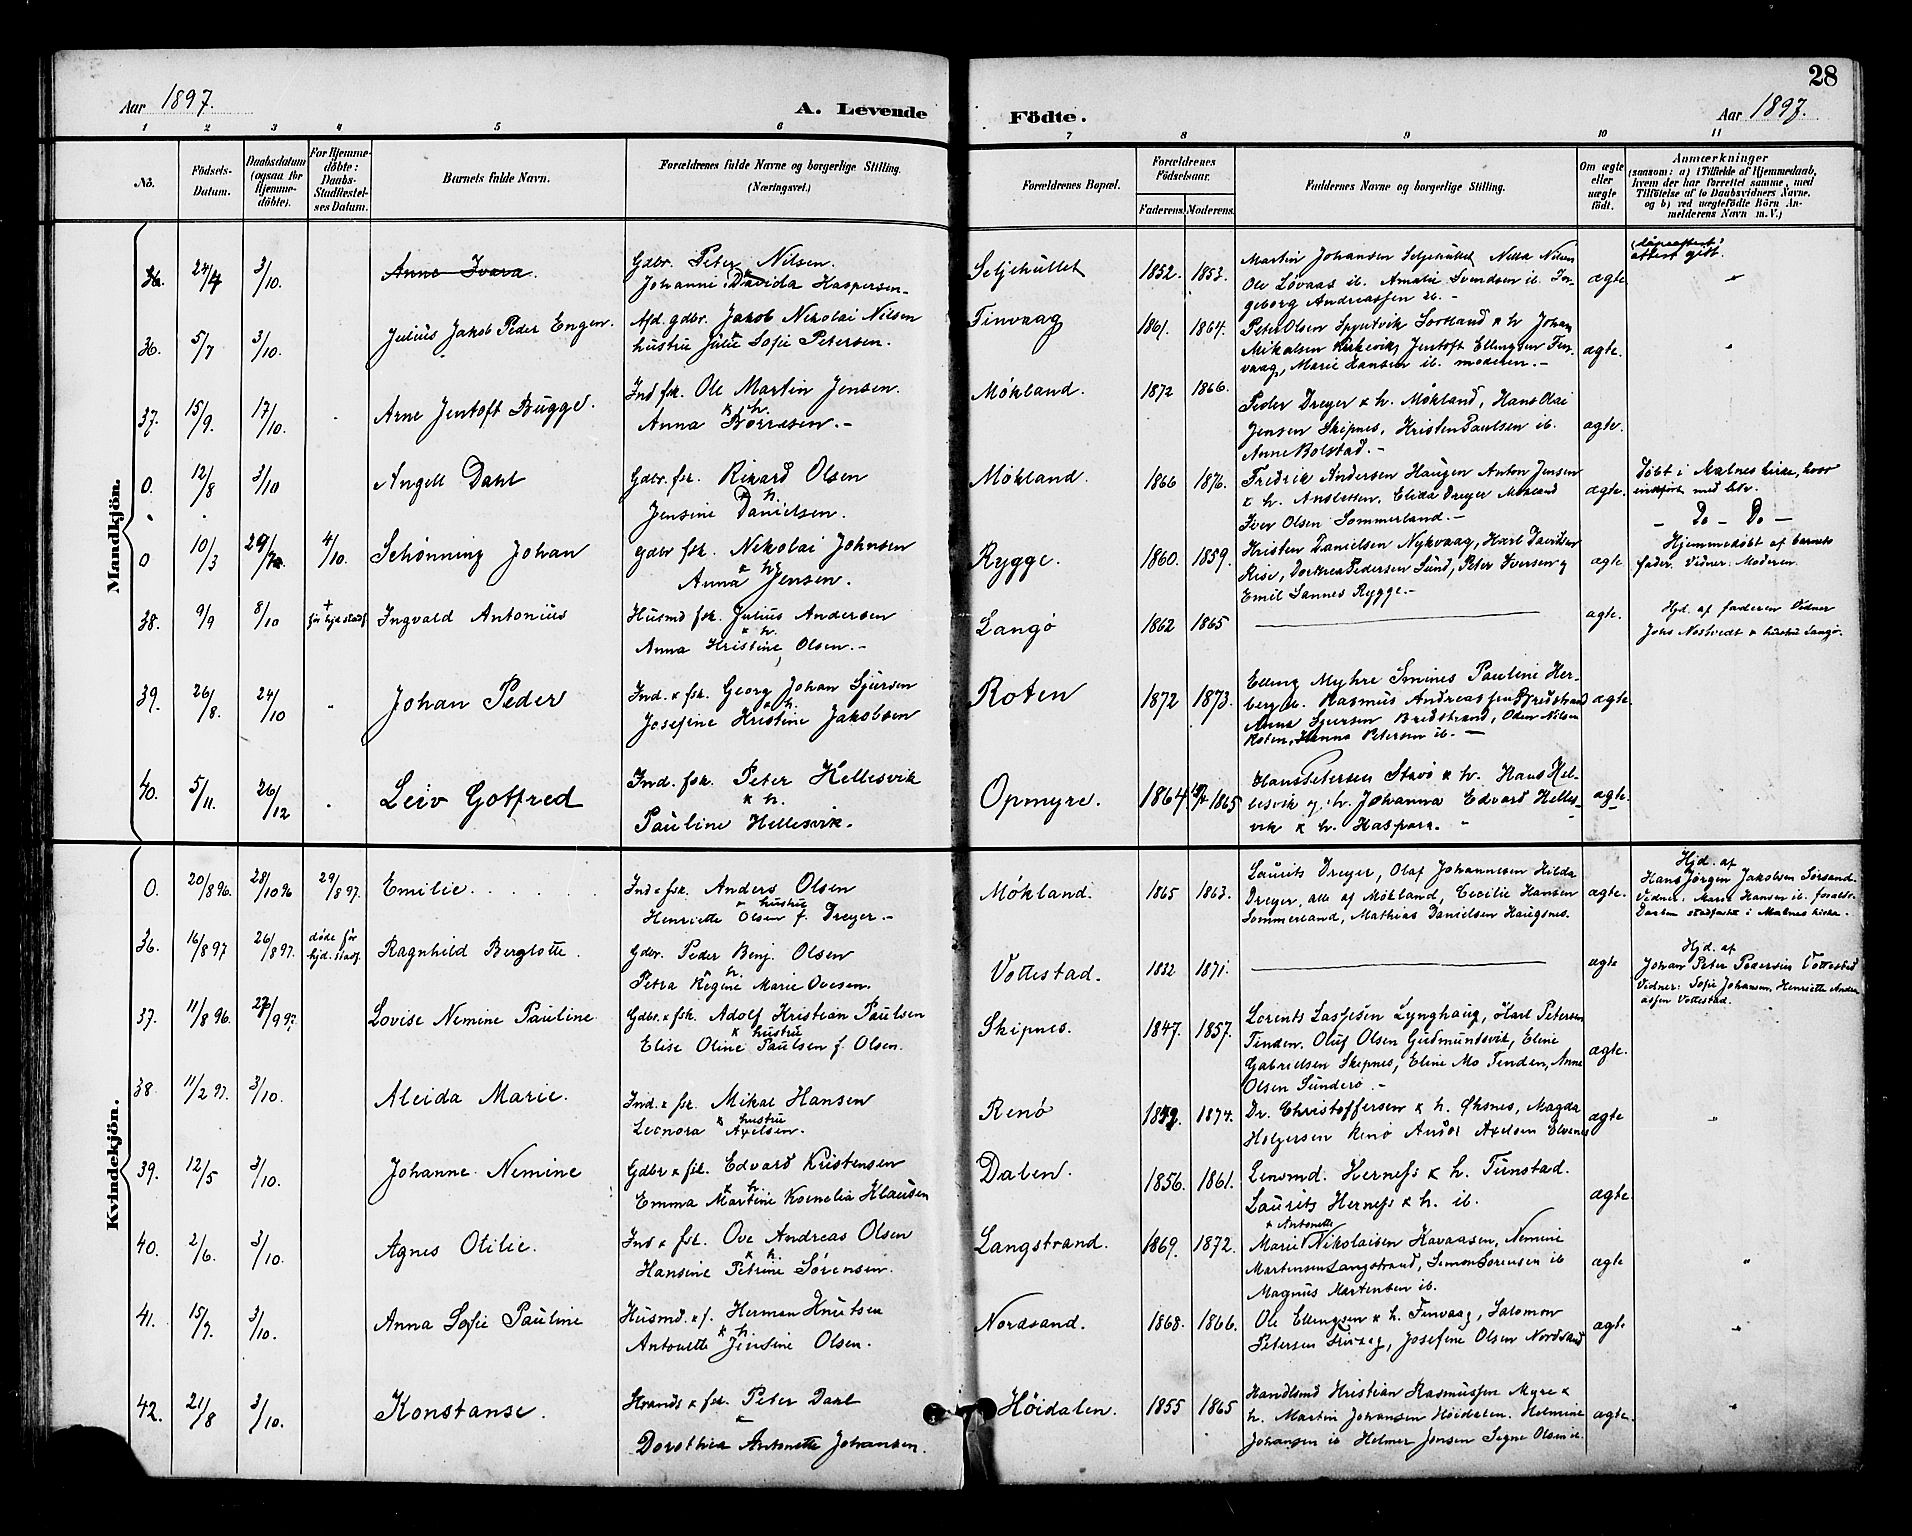 28
Aar 1897.
A. Levende
Födte.
Aar 1897.
1 2 3 4 5 6 7 8 9 10 11
No.
Födsels-
Datum.
Daabsdatum
(ogsaa for
Hjemme-
döbte).
For Hjemme-
döbte:
Daabs-
Stadfæstel-
ses Datum.
Barnets fulde Navn.
Forældrenes fulde Navne og borgerlige Stilling.
(Næringsvei.)
Forældrenes Bopæl.
Forældrenes
Födselsaar.
Faderens. Moderens.
Faddernes Navne og borgerlige Stilling.
Om ægte
eller
uægte
født.
Anmærkninger
(saasom: a) i Tilfælde af Hjemmedaab,
hvem der har forrettet samme, med
Tilföielse af to Daabsvidners Navne,
og b) ved uægtefödte Börn An-
melderens Navn m. V.)
Mandkjön.
36. 24/4 3/10. Anne Ivara.
Gdbr. Peter Nilsen.
Johanne Davida Kaspersen
Seljehullet 1852. 1853.
Martin Johansen Seljehullet Nella Nilsen
Ole Løvaas ib. Amalie Svendsen ib. In-
geborg Andreassen ib. -
ægte
attest gitt.
36. 5/7 3/10. Julius Jakob Peder Engen.
Afd. gdbr. Jakob Nikolai Nilsen
hustru Julie Sofie Petersen.
Finvaag 1861. 1864.
Peter Olsen Spjutvik Sortland & h. Johan
Mikalsen Kirkevik, Jentoft Ellingsen Fin-
vaag, Marie Hansen ib. moderen. -
ægte.
37. 15/9. 17/10. Arne Jentoft Bugge.
Ind fsk. Ole Martin Jensen.
& h.
Anna Borresen. -
Møkland. 1872 1866.
Peder Dreyer & h. Møkland, Hans Olai
Jensen Skipnes, Kristen Paulsen ib.
Anne Bolstad. -
ægte.
0. 12/8 3/10 Angell Dahl
Gdbr. fsk. Rikard Olsen
& h.
Jensine Danielsen.
Møkland. 1866 1876.
Fredrik Andersen Haugen Anton Jensen
& h. Ansletten, Elida Dreyer Møkland
Iver Olsen Sommerland. -
ægte.
Døbt i Malnes kirke, hvor
indført med litr.
- Do - Do -
0 10/3 4/10. Schønning Johan
Gdbr fsk. Nikolai Johnsen
& h.
Anna Jensen.
Rygge. 1860. 1859.
Kristen Danielsen Nykvaag, Karl Davidsen
Rise, Dorthea Pedersen Sund, Peter Iversen &
Emil Sannes Rygge. -
ægte
Hjemmedøbt af barnets
fader. Vidner: Moderen.
38. 9/9 8/10 + før hjd stadf. Ingvald Antonius
Husmd fsk. Julius Andersen
& h.
Anna Kristine Olsen. -
Langø 1862 1865
ægte.
Hjd. af faderen Vidner
Johs Nostvedt & hustru Langø.
39. 26/8. 24/10 Johan Peder
Ind. & fsk. Georg Johan Sjursen
& h.
Josefine Kristine Jakobsen
Roten 1872 1873.
Elling Myhre Smines Pauline Her-
berg ib. Rasmus Andreassen Bredstrand
Anna Sjursen Bredstrand, Olsen Nilsen
Roten, Hanna Petersen ib. -
ægte.
40. 5/11. 26/12 Leiv Gotfred
Ind. fsk. Peter Hellesvik
& h.
Pauline Hellesvik.
Opmyre. 1864 1865
Hans Petersen Stavø & h. Hans Hel-
lesvik & h. Johanna Edvard Helles-
vik & h. Kaspara.
ægte.
Kvindekjön.
0. 20/8 96. 28/10 96 29/8 97. Emilie
Ind & fsk. Anders Olsen
& hustru
Henriette Olsen f. Dreyer. -
Møkland. 1865 1863.
Laurits Dreyer, Olaf Johannesen Hilda
Dreyer, alle af Møkland, Cecilie Hansen
Sommerland, Mathias Danielsen Haugsnes.
ægte.
Hjd. af
Hans Jørgen Jakobsen Sørsand.
Vidner: Marie Hansen ib.
Daaben stadfæstet i Malnes kirke.
36. 16/8 97 26/8 97. døde før hjd. stadf. Ragnhild Berglotte.
Gdbr. Peder Benj. Olsen
& h.
Petra Regine Marie Ovesen.
Vottestad. 1832 1871.
ægte
Hjd. af
Johan Peter Pedersen Vottestad
Vidner: Sofie Johansen, Henriette Andre-
assen Vottestad.
37. 11/8 96. 26/9 97. Lovise Nemine Pauline
Gdbr. & fsk. Adolf Kristian Paulsen
& hustru
Elise Oline Paulsen f. Olsen.
Skipnes. 1847. 1857.
Lorents Lassesen Lynghaug, Karl Petersen
Tinden. Oluf Olsen Gudmundsvik, Eline
Gabrielsen Skipnes, Eline Mo Tinden, Anne
Olsen Sunderø. -
ægte.
38. 11/2 97. 3/10. Aleida Marie.
Ind. & fsk. Mikal Hansen
& hustru
Leonora Axelsen.
Renø 1874.
Dr. Christoffersen & h. Øksnes, Magda
Holgersen Renø Axelsen Elvenes
ægte
39. 12/5 3/10. Johanne Nemine
Gdbr & fsk. Edvard Kristensen
& h.
Emma Martine Kornelia Klausen
Dalen. 1856. 1861.
Lensmd. Hernefs & h. Tunstad.
Laurits Hernefs & h. ib.
ægte
40. 2/6. 3/10. Agnes Otilie.
Ind & fsk. Ove Andreas Olsen
& h.
Hansine Petrine Sørensen.
Langstrand. 1869. 1872.
& Antonette
Marie Nikolaisen Kavaasen, Nemine
Martensen Langstrand, Simon Sorensen ib
Magnus Martensen ib.
ægte
41. 15/7. 3/10. Anna Sofie Pauline
Husmd. & f. Herman Knutsen
& h.
Antonette Jensine Olsen.
Nordsand. 1868. 1866.
Ole Ellingsen & h. Finvaag, Salomon
Petersen Finvaag, Josefine Olsen Nordsand
ægte
42. 21/8 3/10. Konstanse.
Strands & fsk. Peter Dahl
&
Dorothea Antonette Johansen.
Høidalen. 1855 1865
Handlsmd Kristian Rasmussen Myre &
h. Martin Johansen Høidalen. Helmine
Johansen ib Helmer Jensen Signe Olsen ib.
ægte.